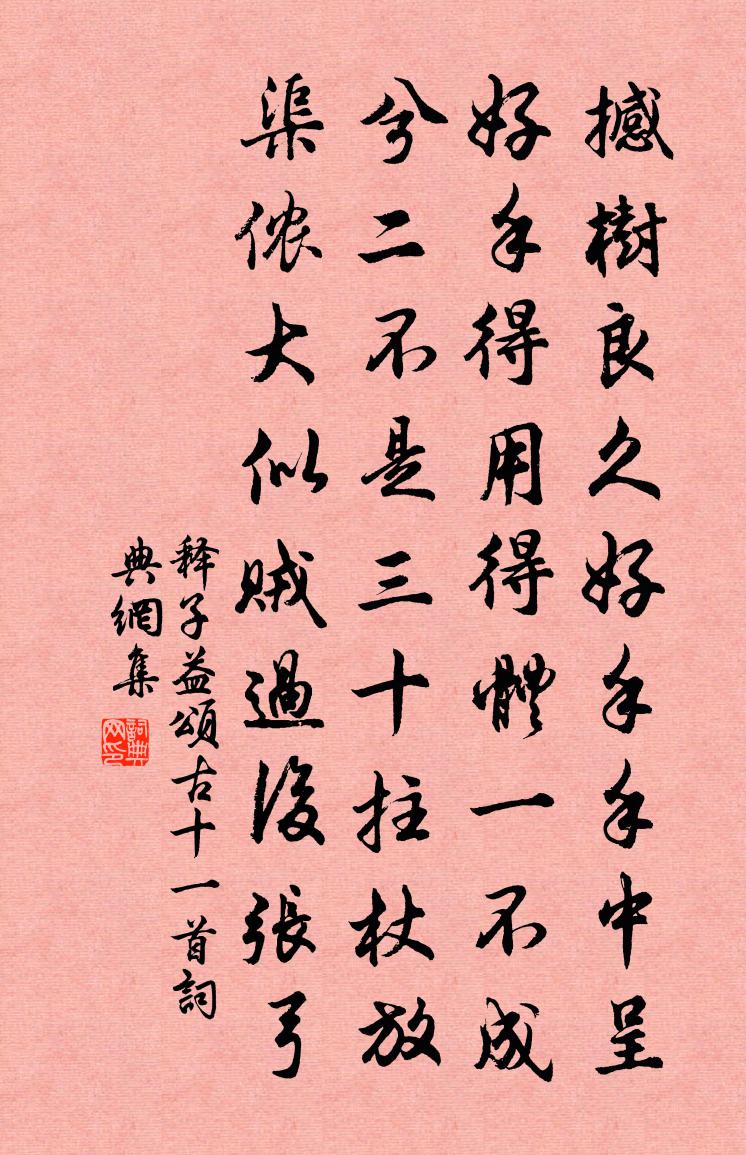 撼樹良久好手手中呈
好手得用得體一不成
兮二不是三十拄杖放
渠侬大似贼過後張弓
释子益頌古十一首詞
典網集
詞典網印